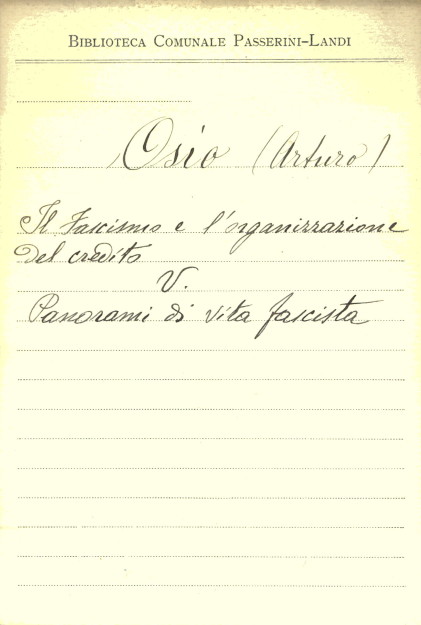 BIBLIOTECA COMUNALE PASSERINI-LANDI
Osio (Arturo)
Il Fascismo e l'organizzazione
del credito
V.
Panorami di vita fascista